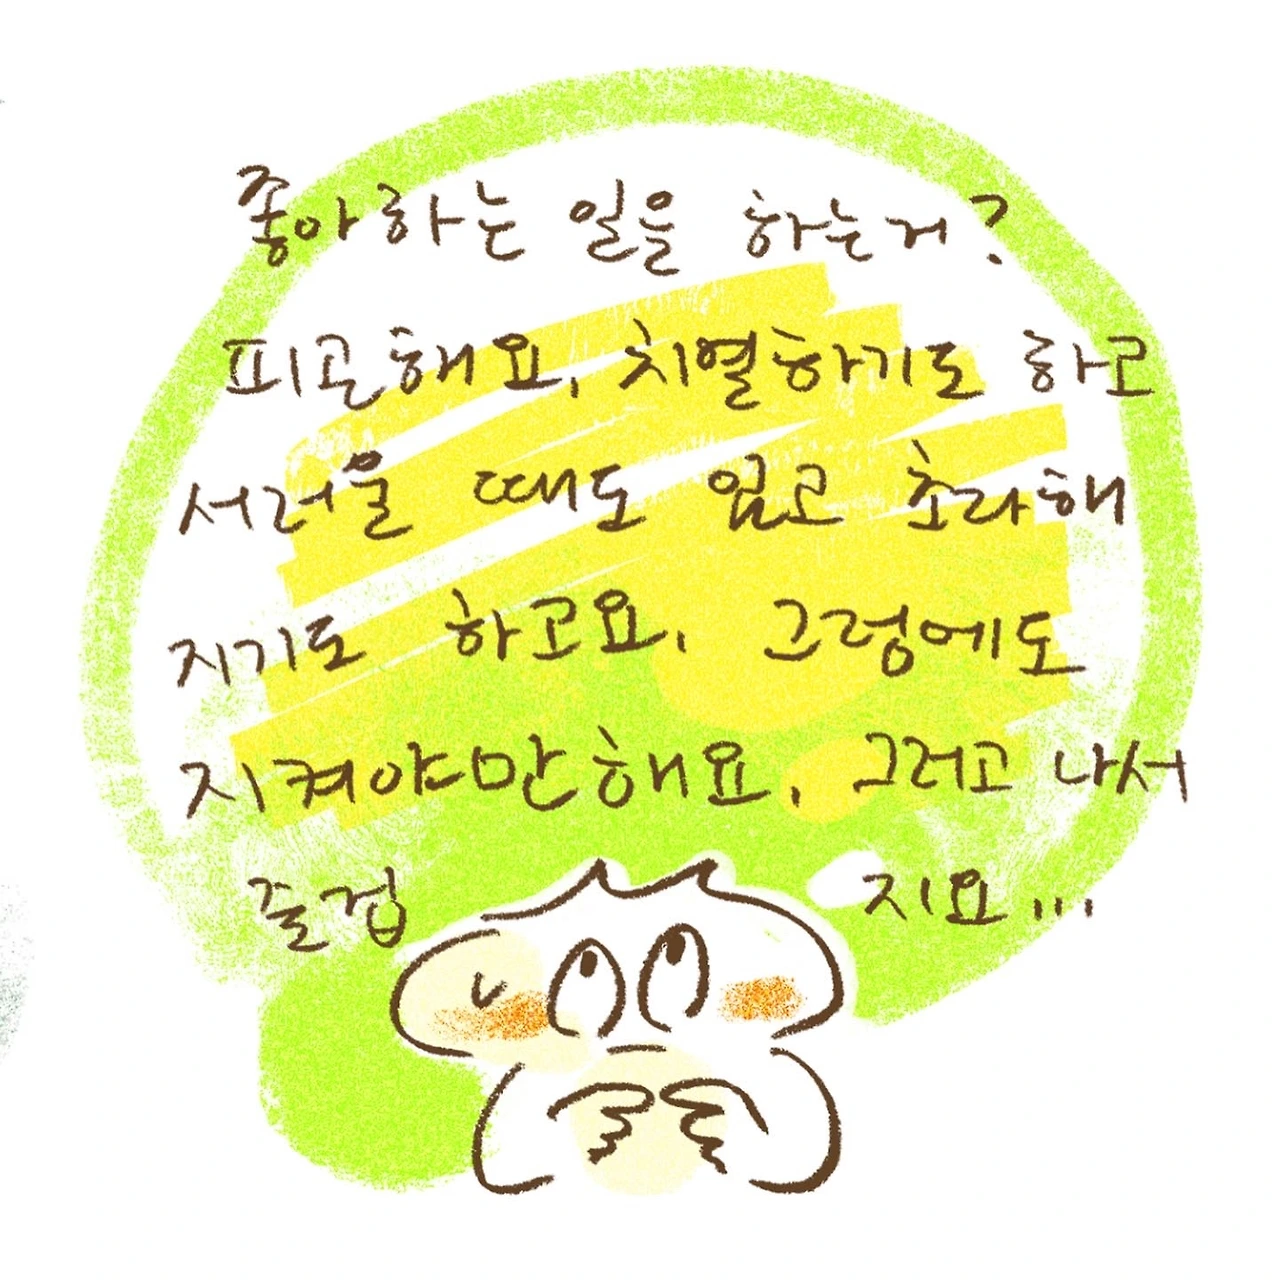 좋아하는 일을 하는거?
피곤해요, 치열하기도 하고
서러울 때도 있고 초라해
지기도 하고요. 그럼에도
지켜야만해요, 그러고 나서
즐겁 지요...